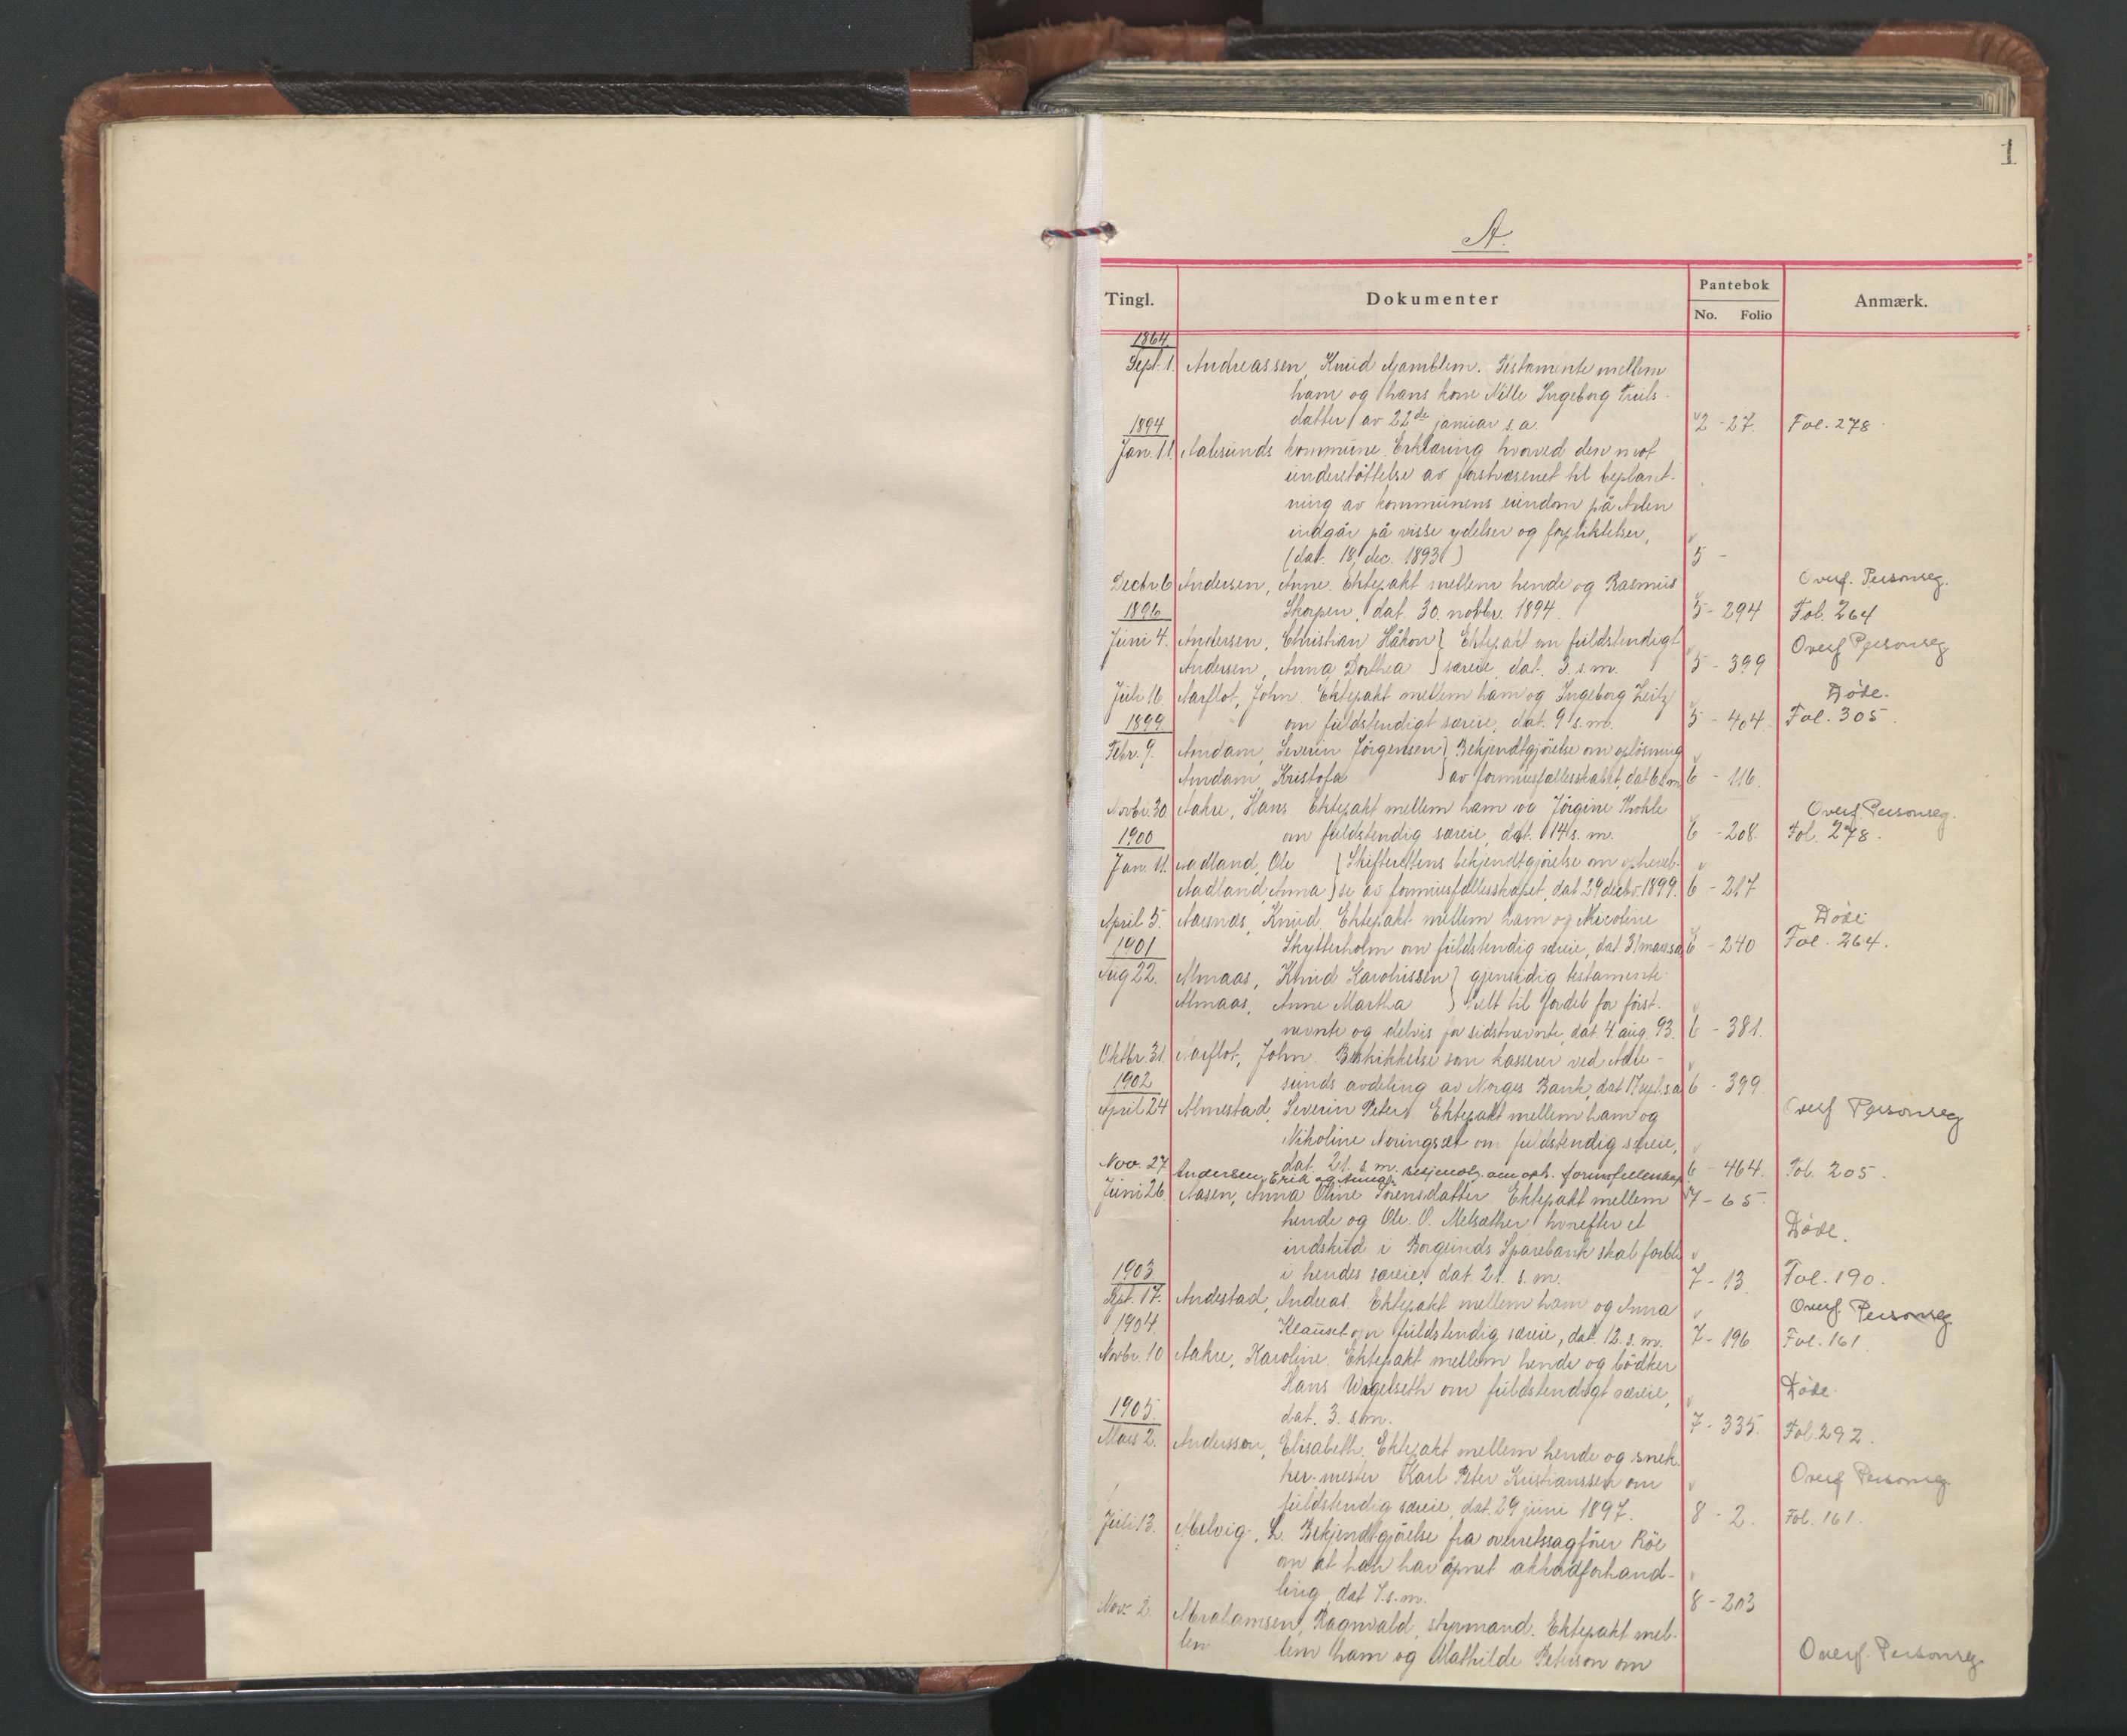 1
A.
Tingl. Dokumenter Pantebok No. Folio Anmærk.
1864
Sept. 1. Andreassen, Knud Gamblem. Testamente mellem
ham og hans kone Nille Ingeborg Truls-
datter av 22de januar s.a. 2 - 27. Fol. 278.
1894
Jan. 11. Aalesunds kommune. Erklæring hvorved den mot
understöttelse av forstvæsenet til beplant-
ning av kommunens eiendom på
indgår på visse ydelser og forpliktelser,
(dat. 18. dec. 1893.) 5 -
Decbr. 6 Andersen, Anne. Ektepakt mellem hende og Rasmus Overf. Personreg.
Skorpen, dat. 30. novbr. 1894. 5 - 294 Fol. 264
1896
Juni 4. Andersen, Christian Håkon } Ektepakt om fuldstendigt Overf Personreg
Andersen, Anna Dorthea } særeie, dat. 3. s. m. 5 - 399
Juli 16 Aarflot, John. Ektepakt mellem ham og Ingeborg Døde.
om fuldstendigt særeie, dat. 9 s. m. 5 - 404. Fol. 305.
1899.
Febr. 9. Amdam, Severin Jörgensen } Bekjendtgjörelse om oplösning
Amdam, Kristofa } av formuesfællesskabet, dat 6 s.m. 6 - 116.
Novbr. 30. Aakre, Hans Ektepakt mellem ham og Jörgine Overf Personreg.
om fuldstendig særeie, dat. 14 s. m. 6 - 208. Fol. 278.
1900
Jan. 11. Aadland, Ole } Skifterettens bekjendtgjörelse om ophevel-
Aadland, Anna } se av formuesfællesskapet, dat 29 decbr 1899. 6 - 217
April 5. Aarsnes, Knud Ektepakt mellem ham og Nicoline Døde
Skytterholm om fuldstendig særeie, dat 31 mars s.a. 6 - 240 Fol. 264.
1901
Aug 22. Almaas, Knud Karolussen } gjensidig testamente
Almaas, Anne Martha } helt til fordel for först-
nevnte og delvis for sidstnevnte, dat. 4. aug. 93. 6 - 381.
Oktbr. 31. Aarflot, John. Beskikkelse som kasserer ved Aale-
sunds avdeling av Norges Bank, dat 17 sept. s.a. 6 - 399.
1902
April 24 Almestad, Severin Peter. Ektepakt mellem ham og Overf Personreg
Nikoline Noringset om fuldstendig særeie,
dat. 21. s. m. 6 - 464. Fol. 205.
Nov. 27 Andersen, Erik og Anna, om oph. formuefellesskap 7 - 65.
Juni 26. Aasen, Anna Oline Sörensdatter Ektepakt mellem
hende og Ole. O. Melsæther hvorefter et Døde.
indskud i Borgunds Sparebank skal forbli
i hendes særeie, dat. 21. s. m. 7 - 13. Fol. 190.
1903
Sept. 17. Andestad, Andreas. Ektepakt mellem ham og Anna Overf. Personreg
Klauset om fuldstendig særeie, dat. 12. s. m. 7 - 196. Fol. 161
1904.
Novbr. 10 Aakre, Karoline. Ektepakt mellem hende og bödker
Hans Vagelseth om fuldstendigt særeie, Døde.
dat. 3. s.m. 7 - 335. Fol. 292.
1905.
Mars 2. Anderssen, Elisabeth. Ektepakt mellem hende og snek-
ker-mester Karl Peter Kristianssen om Overf Personreg.
fuldstendig særeie, dat. 29 juni 1897. 8 - 2. Fol. 161.
Juli 13. Alelvig, L. Bekjendtgjörelse fra overretssagförer Röe
om at han har åpnet akkordforhand-
ling, dat 7. s. m. 8 - 203
Nov. 2. Abrahamsen, Ragnvald, styrmand. Ektepakt mel-
len lem ham og Mathilde Peterson om Overf. Personreg.